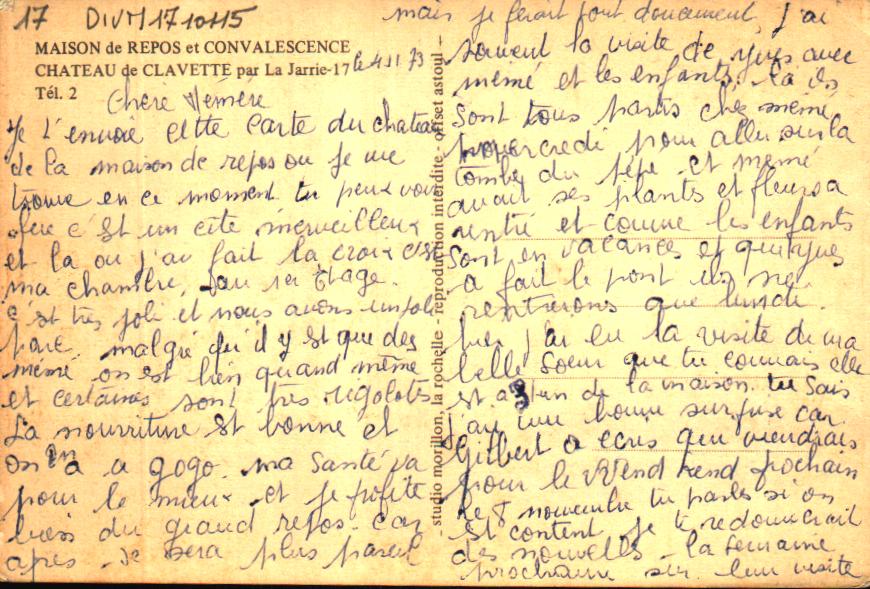 17 DIVM 17 10115
MAISON de REPOS et CONVALESCENCE
CHATEAU de CLAVETTE par La Jarrie-17 le 4 11 73
Tél. 2
Chère Mémère
Je t'envoie cette carte du chateau
de la maison de repos ou je me
trouve en ce moment tu peux voir
c'est un cité merveilleux
et la ou j'ai fait la croix c'est
ma chambre, au 1er étage.
c'est très joli et nous avons un joli
parc. malgré qu'il y est que des
mémé on est bien quand même
et certaines sont très rigolotes
La nourriture est bonne et
on en a a gogo. ma santé va
pour le mieux et je profite
bien du grand repos. car
après se sera plus pareil
- studio morillon, la rochelle - reproduction interdite - offset astoul -
mais je ferait tout doucement, j'ai
souvent la visite de yves avec
mémé et les enfants, la ils
sont tous partis chez mémé
mercredi pour aller sur la
tombe du pépé et mémé
avait ses plants et fleurs a
rentré et comme les enfants
sont en vacances et que yves
a fait le pont ils ne
rentrerons que lundi.
hier j'ai eu la visite de ma
belle soeur que tu connais elle
est a de la maison. tu sais
j'ai une bonne surprise car
Gilbert a ecris qu'en viendrais
pour le Wend kend prochain
le novembre tu parles si on
est content. je te redonnerait
des nouvelles la semaine
prochaine sur leur visite